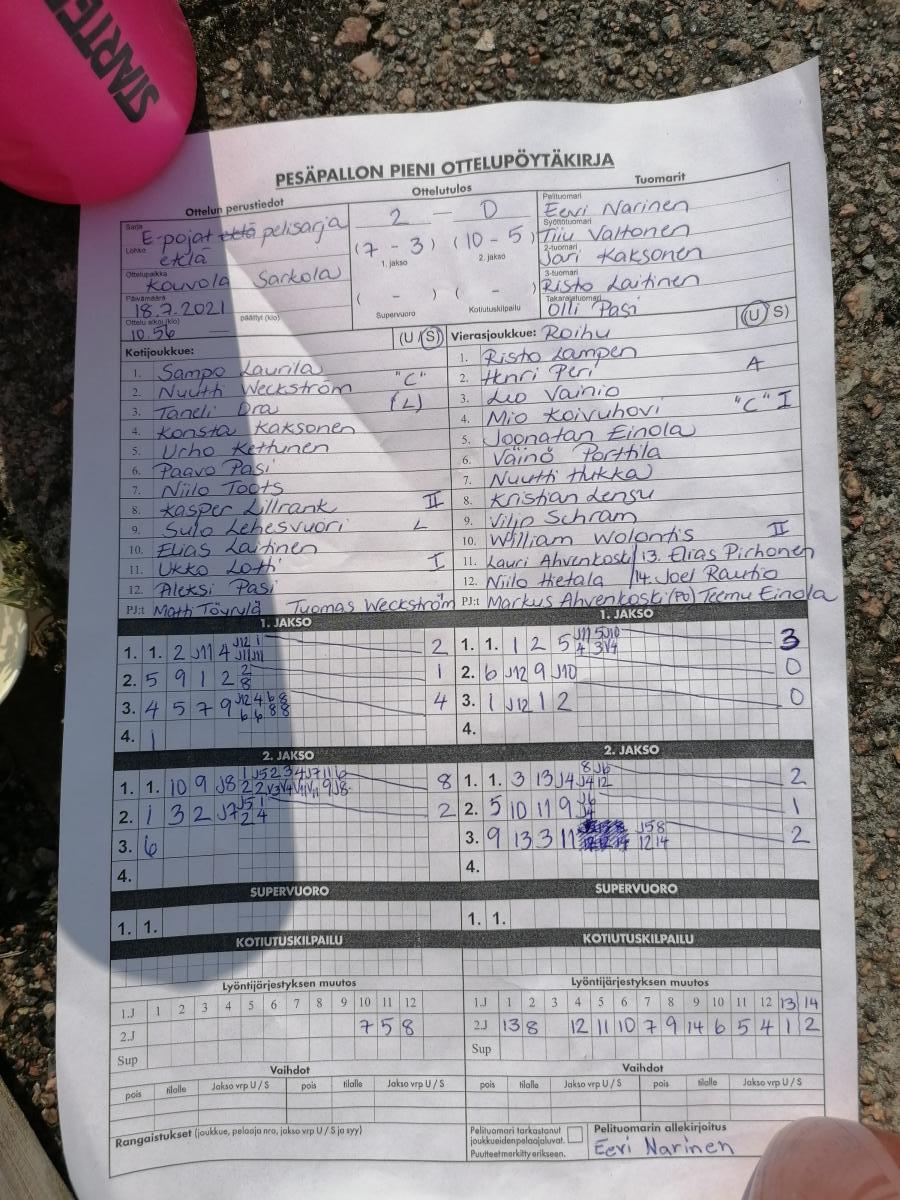 STARTER
PESÄPALLON PIENI OTTELUPÖYTÄKIRJA
Ottelun perustiedot
Sarja
E-pojat pelisarja
Lohko
etelä
Ottelupaikka
Kouvola Sarkola
Päivämäärä
18.7.2021
Ottelu alkoi (klo) päättyi (klo)
10.56 —
Ottelutulos
2 — 0
(7 - 3) (10 - 5)
1. jakso 2. jakso
( - ) ( - )
Supervuoro Kotiutuskilpailu
Tuomarit
Pelituomari
Eevi Narinen
Syöttötuomari
Tiiu Valtonen
2-tuomari
Jari Kaksonen
3-tuomari
Risto Laitinen
Takarajatuomari
Olli Pasi
Kotijoukkue: (U S)
1. Sampo Laurila
2. Nuutti Weckström "C"
3. Taneli Ora (L)
4. Konsta Kaksonen
5. Urho Kettunen
6. Paavo Pasi
7. Niilo Toots
8. Kasper Lillrank II
9. Sulo Lehesvuori L
10. Elias Laitinen
11. Ukko Lotti I
12. Aleksi Pasi
PJ:t Matti Töyrylä Tuomas Weckström
Vierasjoukkue: Roihu (U S)
1. Risto Lampen
2. Henri Peri A
3. Leo Vainio
4. Mio Koivuhovi "C" I
5. Joonatan Einola
6. Väinö Porttila
7. Nuutti Hukka
8. Kristian Lensu
9. Viljo Schram
10. William Wolontis II
11. Lauri Ahvenkoski / 13. Elias Pirhonen
12. Niilo Hietala / 14. Joel Rautio
PJ:t Markus Ahvenkoski (PO) Teemu Einola
1. JAKSO
1. 1. 2 J11 4 J12 1 J11 J11 2
2. 5 9 1 2 2 8 1
3. 4 5 7 9 J12 4 6 8 6 6 8 8 4
4. 1
1. JAKSO
1. 1. 1 2 5 J11 5 J10 4 3 V4 3
2. 6 J12 9 J10 0
3. 1 J12 1 2 0
4.
2. JAKSO
1. 1. 10 9 J8 8
2. 1 3 2 J7 J5 1 2 4 2
3. 6
4.
2. JAKSO
1. 1. 3 13 J4 8 J6 J4 12 2
2. 5 10 11 9 J6 J4 1
3. 9 13 3 11 J5 8 12 14 2
4.
SUPERVUORO
1. 1.
SUPERVUORO
1. 1.
KOTIUTUSKILPAILU
KOTIUTUSKILPAILU
Lyöntijärjestyksen muutos
1.J 1 2 3 4 5 6 7 8 9 10 11 12
2.J 7 5 8
Sup
Lyöntijärjestyksen muutos
1.J 1 2 3 4 5 6 7 8 9 10 11 12 13 14
2.J 13 8 12 11 10 7 9 14 6 5 4 1 2
Sup
Vaihdot
pois tilalle Jakso vrp U / S pois tilalle Jakso vrp U / S
Vaihdot
pois tilalle Jakso vrp U / S pois tilalle Jakso vrp U / S
Rangaistukset (joukkue, pelaaja nro, jakso vrp U / S ja syy)
Pelituomari tarkastanut
joukkueiden pelaajaluvat.
Puutteet merkitty erikseen.
Pelituomarin allekirjoitus
Eevi Narinen